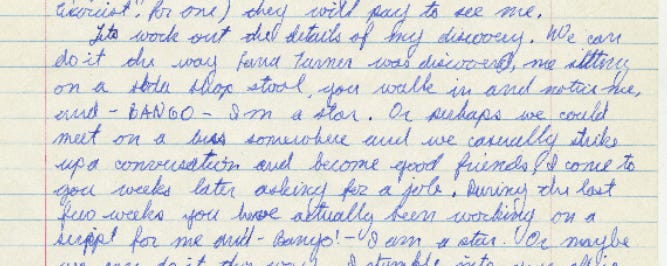 Exorcist", for one) they will pay to see me.
Lets work out the details of my discovery. We can
do it the way Lana Turner was discovered, me sitting
on a soda shop stool, you walk in and notice me,
and - BANGO - I'm a star. Or perhaps we could
meet on a bus somewhere and we casually strike
up a conversation and become good friends, I come to
you weeks later asking for a job. During the last
few weeks you have actually been working on a
script for me and - Bango! - I am a star. Or maybe
we can do it this way. I stumble into your